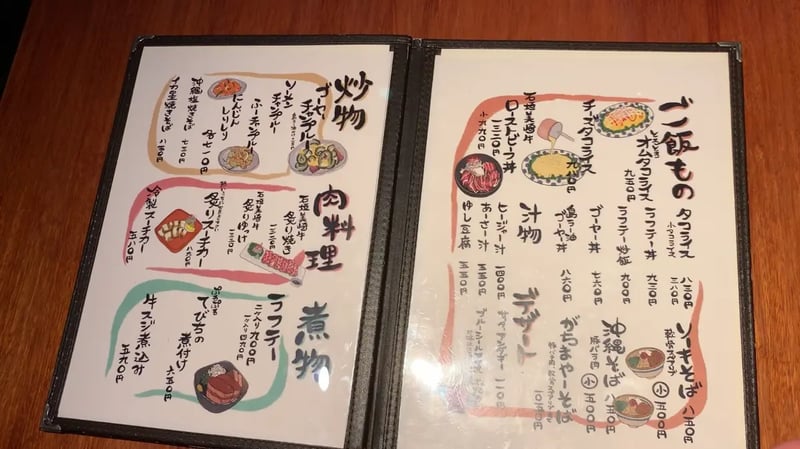 ご飯もの
タコライス 八三〇円
小タコライス 三八〇円
オムタコライス
九五〇円
チーズタコライス
九八〇円
石垣美崎牛
ローストビーフ丼
一三二〇円
小 六六〇円
ラフテー丼 九三〇円
ラフテー炒飯 九〇〇円
ゴーヤー丼 七六〇円
島ラー油
ゴーヤー丼 八六〇円
汁物
ヒージャー汁 一四〇〇円
あーさー汁 五五〇円
ゆし豆腐 五五〇円
ソーキそば 八五〇円
小 五〇〇円
沖縄そば 八五〇円
小 五〇〇円
デザート
炒物
ゴーヤー
チャンプルー
ソーメン
チャンプルー
ふーチャンプルー
にんじん
しりしり
各七一〇円
沖縄塩焼きそば 七五〇円
イカ墨焼きそば 八五〇円
肉料理
石垣美崎牛
炙り焼き
石垣美崎牛
炙りゆっけ
炙りスーチカー
冷製スーチカー 五八〇円
煮物
ラフテー
二ケ入り 九〇〇円
一ケ入り 四六〇円
ぷるぷる
てびちの
煮付け 六五〇円
牛スジ煮込み 五九〇円